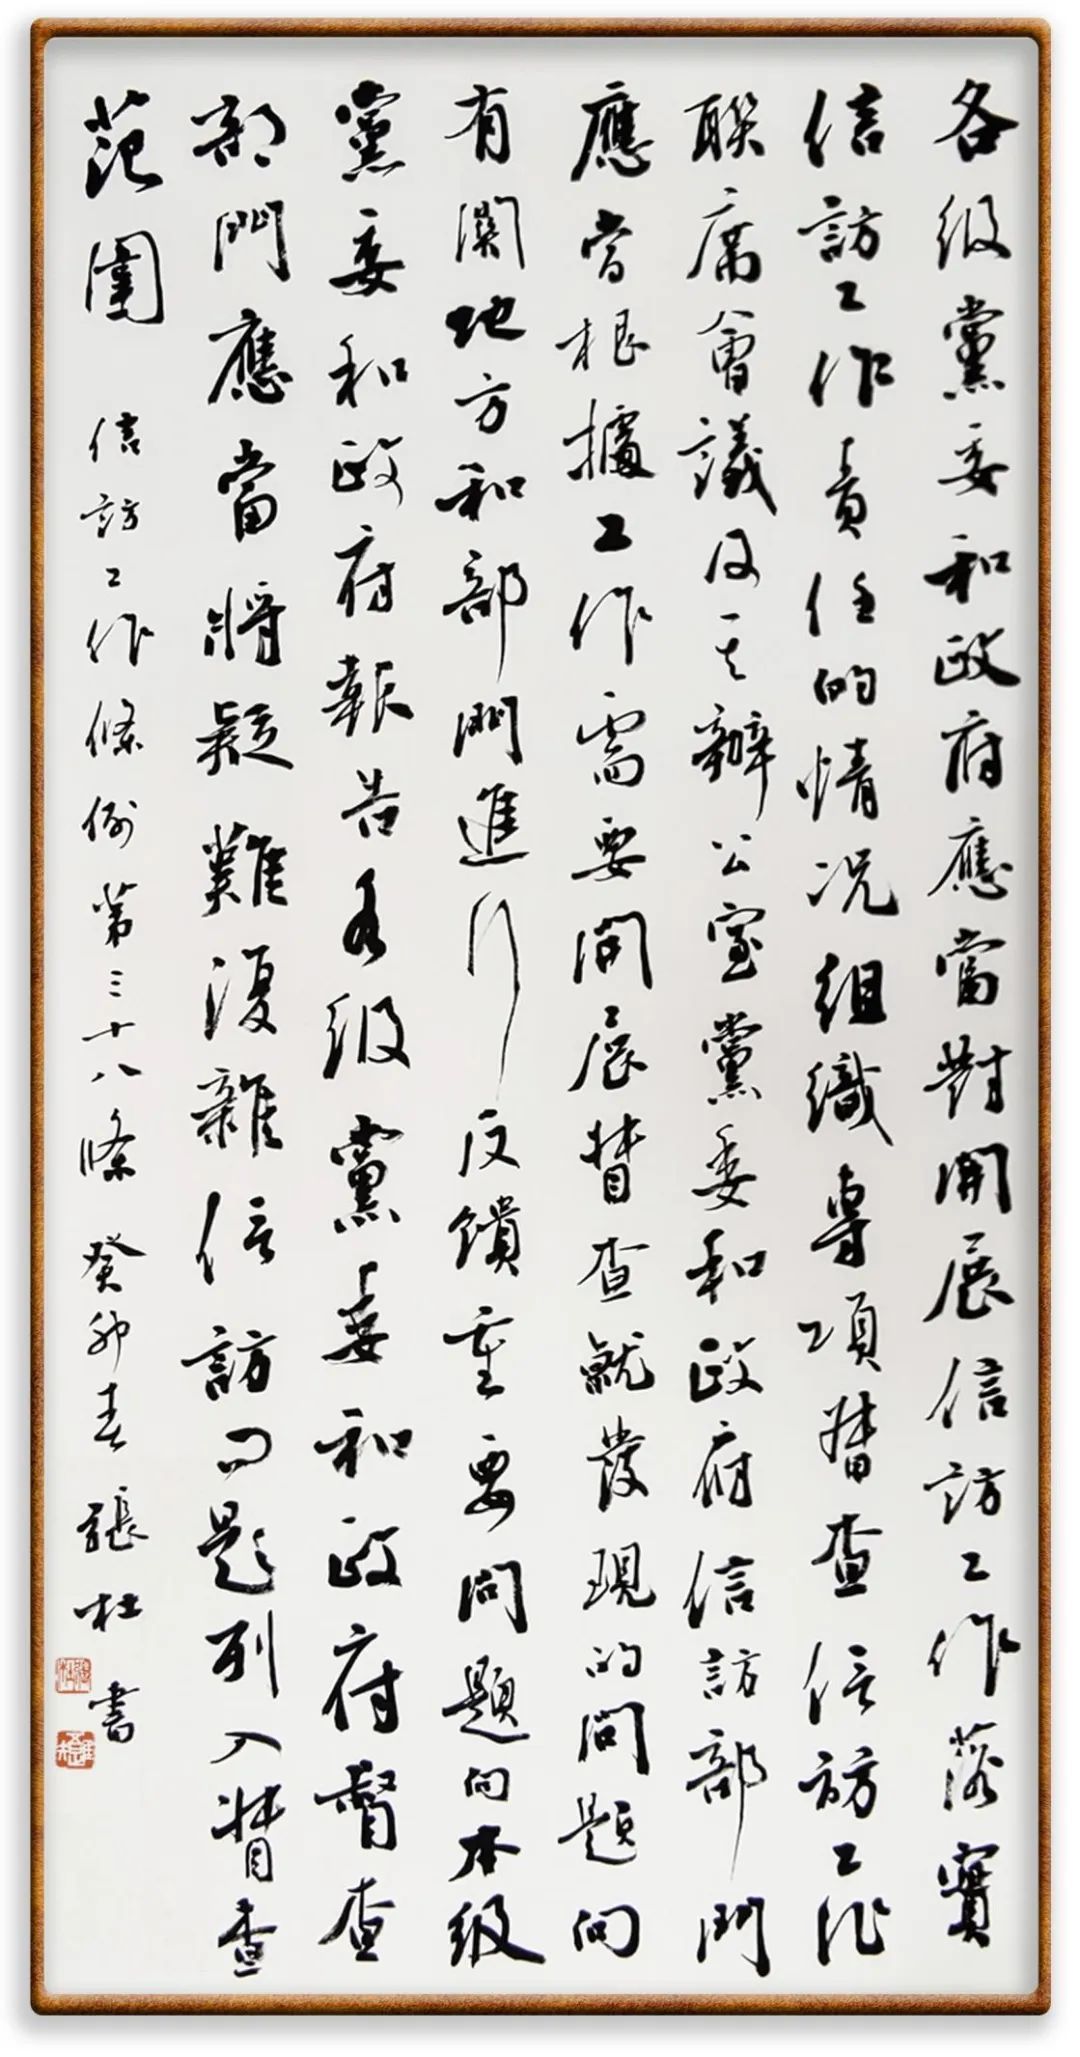 各级黨委和政府應當對開展信訪工作落實
信訪工作責任的情况組織專項督查信訪工作
聯席會議及其辦公室黨委和政府信訪部門
應當根據工作需要開展督查就發現的問題向
有關地方和部門進行反饋重要問題向本级
黨委和政府報告各级黨委和政府督查
部門應當將疑難復雜信訪问題列入督查
范圍
信訪工作條例第三十八條 癸卯春 張杜書